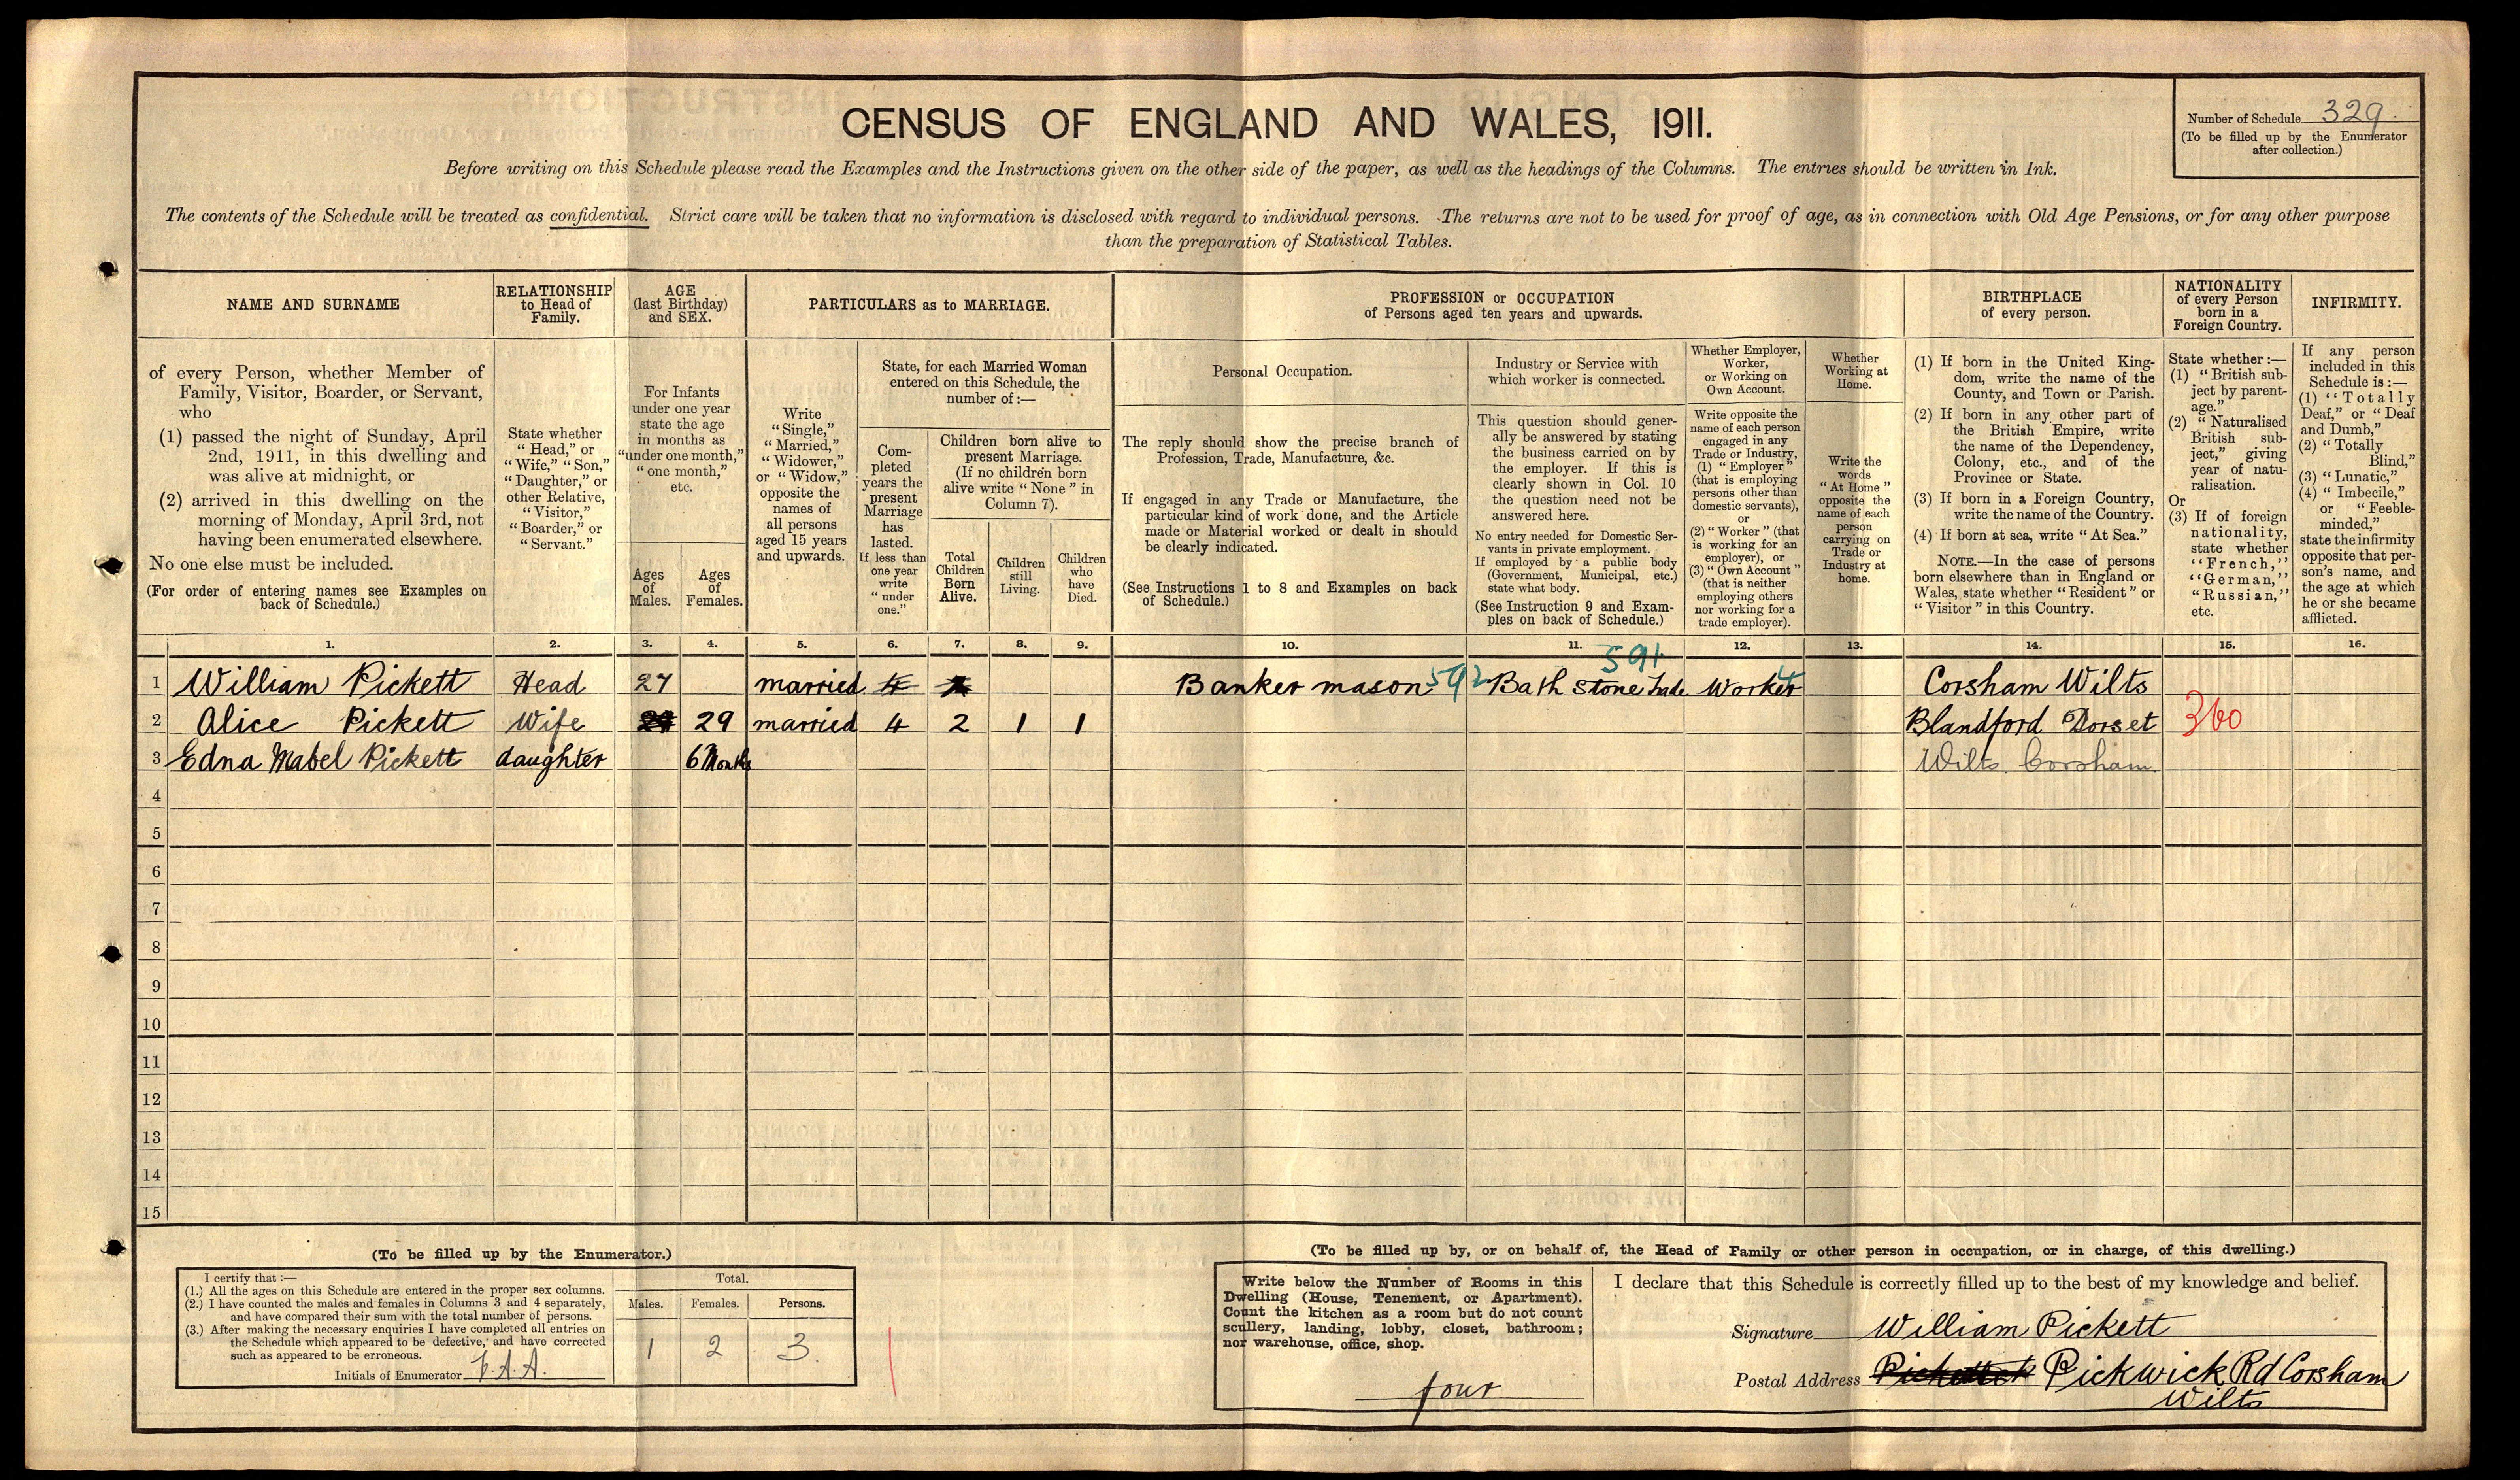 CENSUS OF ENGLAND AND WALES, 1911.
Number of Schedule 329.
(To be filled up by the Enumerator
after collection.)
Before writing on this Schedule please read the Examples and the Instructions given on the other side of the paper, as well as the headings of the Columns. The entries should be written in Ink.
The contents of the Schedule will be treated as confidential. Strict care will be taken that no information is disclosed with regard to individual persons. The returns are not to be used for proof of age, as in connection with Old Age Pensions, or for any other purpose
than the preparation of Statistical Tables.
NAME AND SURNAME
of every Person, whether Member of
Family, Visitor, Boarder, or Servant,
who
(1) passed the night of Sunday, April
2nd, 1911, in this dwelling and
was alive at midnight, or
(2) arrived in this dwelling on the
morning of Monday, April 3rd, not
having been enumerated elsewhere.
No one else must be included.
(For order of entering names see Examples on
back of Schedule.)
RELATIONSHIP
to Head of
Family.
State whether
"Head," or
"Wife," "Son,"
"Daughter," or
other Relative,
"Visitor,"
"Boarder," or
"Servant."
AGE
(last Birthday)
and SEX.
For Infants
under one year
state the age
in months as
"under one month,"
"one month,"
etc.
Ages
of
Males.
Ages
of
Females.
PARTICULARS as to MARRIAGE.
Write
"Single,"
"Married,"
"Widower,"
or "Widow,"
opposite the
names of
all persons
aged 15 years
and upwards.
State, for each Married Woman
entered on this Schedule, the
number of:—
Com-
pleted
years the
present
Marriage
has
lasted.
If less than
one year
write
"under
one."
Children born alive to
present Marriage.
(If no children born
alive write "None" in
Column 7).
Total
Children
Born
Alive.
Children
still
Living.
Children
who
have
Died.
PROFESSION or OCCUPATION
of Persons aged ten years and upwards.
Personal Occupation.
The reply should show the precise branch of
Profession, Trade, Manufacture, &c.
If engaged in any Trade or Manufacture, the
particular kind of work done, and the Article
made or Material worked or dealt in should
be clearly indicated.
(See Instructions 1 to 8 and Examples on back
of Schedule.)
Industry or Service with
which worker is connected.
This question should gener-
ally be answered by stating
the business carried on by
the employer. If this is
clearly shown in Col. 10
the question need not be
answered here.
No entry needed for Domestic Ser-
vants in private employment.
If employed by a public body
(Government, Municipal, etc.)
state what body.
(See Instruction 9 and Exam-
ples on back of Schedule.)
Whether Employer,
Worker,
or Working on
Own Account.
Write opposite the
name of each person
engaged in any
Trade or Industry,
(1) "Employer"
(that is employing
persons other than
domestic servants),
or
(2) "Worker" (that
is working for an
employer), or
(3) "Own Account"
(that is neither
employing others
nor working for a
trade employer).
Whether
Working at
Home.
Write the
words
"At Home"
opposite the
name of each
person
carrying on
Trade or
Industry at
home.
BIRTHPLACE
of every person.
(1) If born in the United King-
dom, write the name of the
County, and Town or Parish.
(2) If born in any other part of
the British Empire, write
the name of the Dependency,
Colony, etc., and of the
Province or State.
(3) If born in a Foreign Country,
write the name of the Country.
(4) If born at sea, write "At Sea."
NOTE.—In the case of persons
born elsewhere than in England or
Wales, state whether "Resident" or
"Visitor" in this Country.
NATIONALITY
of every Person
born in a
Foreign Country.
State whether:—
(1) "British sub-
ject by parent-
age."
(2) "Naturalised
British sub-
ject," giving
year of natu-
ralisation.
Or
(3) If of foreign
nationality,
state whether
"French,"
"German,"
"Russian,"
etc.
INFIRMITY.
If any person
included in this
Schedule is:—
(1) "Totally
Deaf," or "Deaf
and Dumb,"
(2) "Totally
Blind,"
(3) "Lunatic,"
(4) "Imbecile,"
or "Feeble-
minded,"
state the infirmity
opposite that per-
son's name, and
the age at which
he or she became
afflicted.
1. 2. 3. 4. 5. 6. 7. 8. 9. 10. 11. 12. 13. 14. 15. 16.
591
1 William Pickett Head 27 married Banker mason 592 Bath Stone Trade Worker Corsham Wilts
2 Alice Pickett Wife 29 married 4 2 1 1 Blandford Dorset 360
3 Edna Mabel Pickett daughter 6 Months Wilts Corsham
4
5
6
7
8
9
10
11
12
13
14
15
(To be filled up by the Enumerator.)
I certify that:—
(1.) All the ages on this Schedule are entered in the proper sex columns.
(2.) I have counted the males and females in Columns 3 and 4 separately,
and have compared their sum with the total number of persons.
(3.) After making the necessary enquiries I have completed all entries on
the Schedule which appeared to be defective, and have corrected
such as appeared to be erroneous.
Initials of Enumerator
Total.
Males. Females. Persons.
1 2 3.
(To be filled up by, or on behalf of, the Head of Family or other person in occupation, or in charge, of this dwelling.)
Write below the Number of Rooms in this
Dwelling (House, Tenement, or Apartment).
Count the kitchen as a room but do not count
scullery, landing, lobby, closet, bathroom;
nor warehouse, office, shop.
four
I declare that this Schedule is correctly filled up to the best of my knowledge and belief.
Signature William Pickett
Postal Address Pickwick Rd Corsham
Wilts